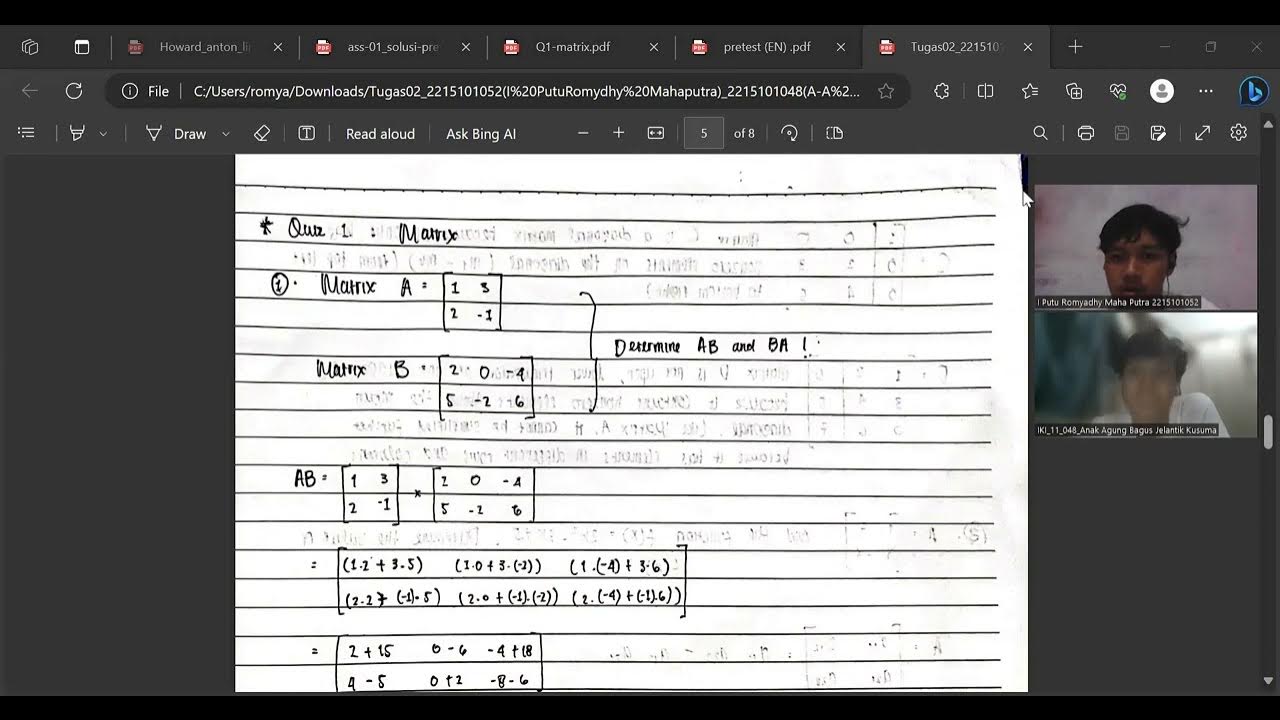 Howard_anton_li
ass-01_solusi-pre
Q1-matrix.pdf
pretest (EN) .pdf
Tugas02_2215101
File
C:/Users/romya/Downloads/Tugas02_2215101052(I%20PutuRomydhy%20Mahaputra)_2215101048(A-A%2...
Draw
Read aloud
Ask Bing AI
5 of 8
* Quiz 1 : Matrix
①. Matrix A = [1 3
2 -1]
Determine AB and BA !
Matrix B = [2 0 -4
5 -2 6]
AB = [1 3 × [2 0 -4
2 -1] 5 -2 6]
= [(1.2 + 3.5) (1.0 + 3.(-2)) (1.(-4) + 3.6)
(2.2 + (-1).5) (2.0 + (-1).(-2)) (2.(-4) + (-1).6))]
= [2 + 15 0 - 6 -4 + 18
4 - 5 0 + 2 -8 - 6
I Putu Romyadhy Maha Putra 2215101052
IKI_11_048_Anak Agung Bagus Jelantik Kusuma